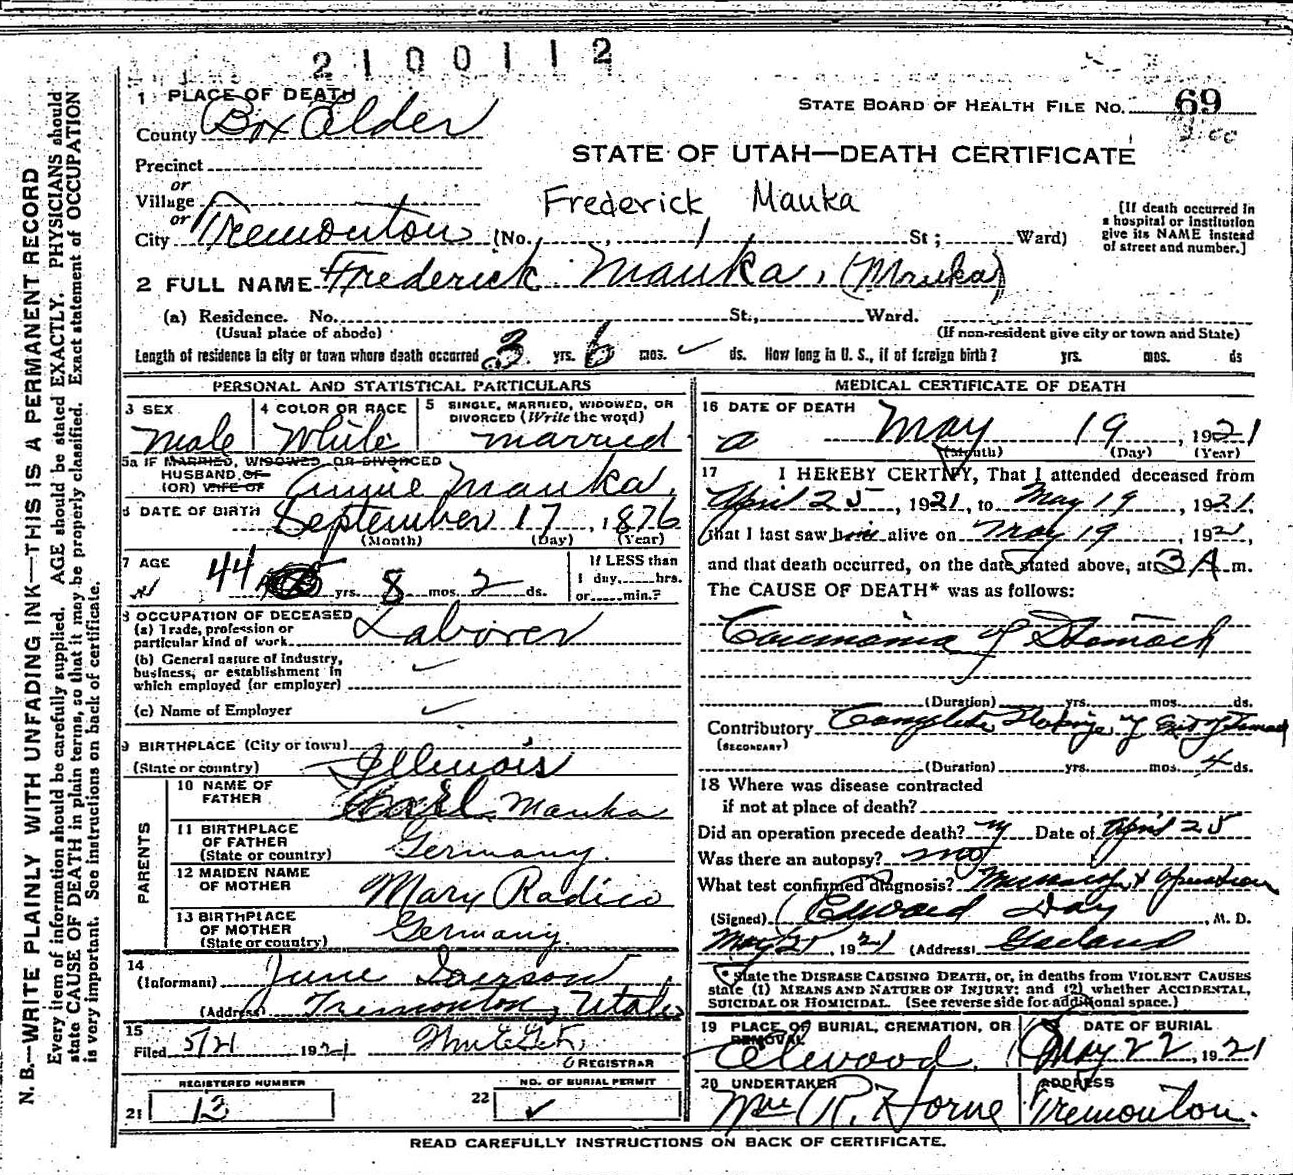 2100112
1 PLACE OF DEATH
STATE BOARD OF HEALTH FILE NO. 69
County Box Elder
STATE OF UTAH—DEATH CERTIFICATE
Precinct
or
Village
Frederick Mauka
[If death occurred in
a hospital or institution
give its NAME instead
of street and number.]
or
City Tremonton (No. St; Ward)
2 FULL NAME Frederick Mauka, (Mauka)
(a) Residence. No. St., Ward.
(Usual place of abode) (If non-resident give city or town and State)
Length of residence in city or town where death occurred 3 yrs. 6 mos. ✓ ds. How long in U. S., if of foreign birth? yrs. mos. ds
PERSONAL AND STATISTICAL PARTICULARS
3 SEX Male
4 COLOR OR RACE White
5 SINGLE, MARRIED, WIDOWED, OR
DIVORCED (Write the word)
married
5a IF MARRIED, WIDOWED OR DIVORCED
HUSBAND OF
(OR) WIFE OF Annie Mauka.
6 DATE OF BIRTH September 17, 1876
(Month) (Day) (Year)
7 AGE 44 yrs. 8 mos. 2 ds.
If LESS than
1 day, hrs.
or min.?
8 OCCUPATION OF DECEASED
(a) Trade, profession or
particular kind of work Laborer
(b) General nature of industry,
business, or establishment in
which employed (or employer) ✓
(c) Name of Employer ✓
9 BIRTHPLACE (City or town)
(State or country) Illinois
PARENTS
10 NAME OF
FATHER Mauka
11 BIRTHPLACE
OF FATHER
(State or country) Germany.
12 MAIDEN NAME
OF MOTHER Mary Radico
13 BIRTHPLACE
OF MOTHER
(State or country) Germany.
14
(Informant) June
(Address) Tremonton, Utah
15
Filed 5/21 1921
REGISTRAR
REGISTERED NUMBER
21 13
NO. OF BURIAL PERMIT
22 ✓
MEDICAL CERTIFICATE OF DEATH
16 DATE OF DEATH
a May 19, 1921
(Month) (Day) (Year)
17 I HEREBY CERTIFY, That I attended deceased from
April 25, 1921, to May 19, 1921,
that I last saw him alive on May 19, 1921,
and that death occurred, on the date stated above, at 3 A m.
The CAUSE OF DEATH* was as follows:
of Stomach
(Duration) yrs. mos. ds.
Contributory Complete of
(SECONDARY)
(Duration) yrs. mos. 4 ds.
18 Where was disease contracted
if not at place of death?
Did an operation precede death? y Date of April 25
Was there an autopsy? no
What test confirmed diagnosis? operation
(Signed) Edward Day, M. D.
May 21 1921 (Address) Garland
* State the DISEASE CAUSING DEATH, or, in deaths from VIOLENT CAUSES
state (1) MEANS AND NATURE OF INJURY; and (2) whether ACCIDENTAL,
SUICIDAL OR HOMICIDAL. (See reverse side for additional space.)
19 PLACE OF BURIAL, CREMATION, OR
REMOVAL
Elwood.
DATE OF BURIAL
May 22, 1921
20 UNDERTAKER
Wm R. Horne
ADDRESS
Tremonton.
READ CAREFULLY INSTRUCTIONS ON BACK OF CERTIFICATE.
N. B.—WRITE PLAINLY WITH UNFADING INK—THIS IS A PERMANENT RECORD
Every item of information should be carefully supplied. AGE should be stated EXACTLY. PHYSICIANS should
state CAUSE OF DEATH in plain terms, so that it may be properly classified. Exact statement of OCCUPATION
is very important. See instructions on back of certificate.